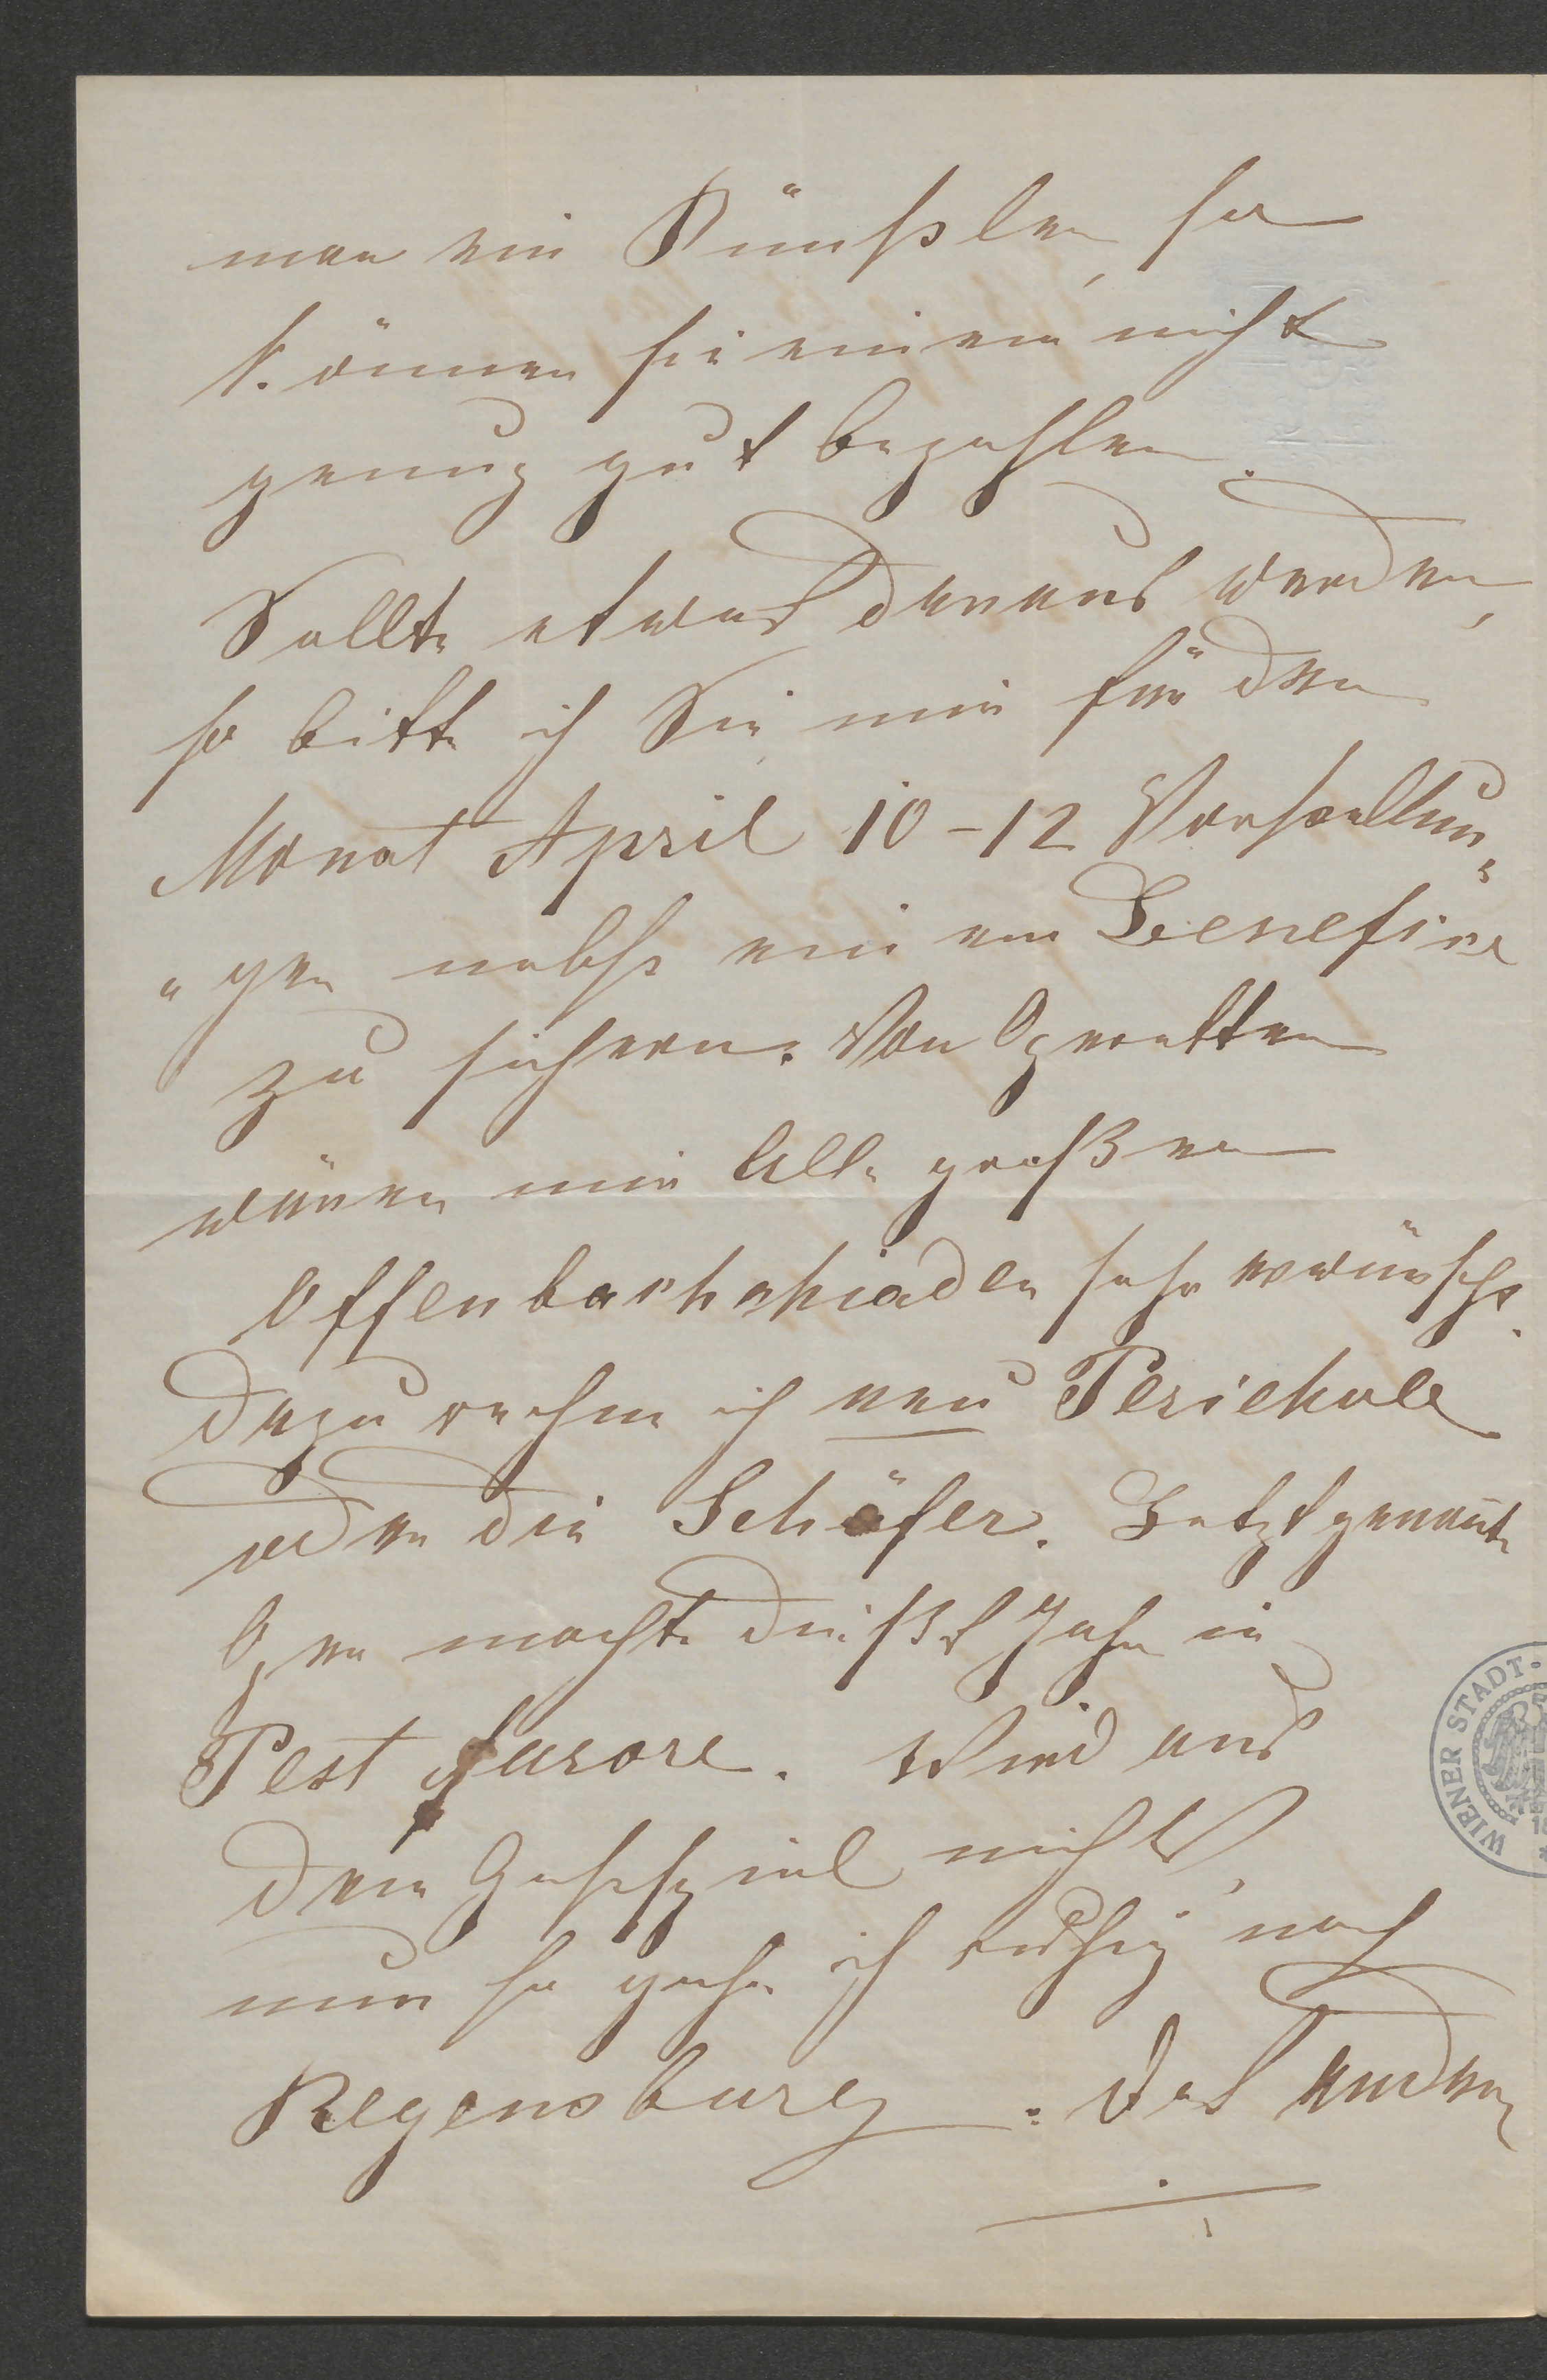 man ein Künstler, so
können sie einem nicht
genug gut bezahlen.
Sollte etwas daraus werden,
so bitte ich Sie mir für den
Monat April 10-12 Vorstellun„
„gen nebst einem Benefice
zu sichern. Von Operetten
wären mir Alle großen
Offenbachchiaden sehr erwünscht.
Dazu nehme ich neu Perichole
oder die Schäfer. Letztgenan̄te
Oper machte dieß Jahr in
Pest furore. Wird aus
dem Gastspiel nichts,
nun so gehe ich ruhig nach
Regensburg. Das
WIENER STADT-